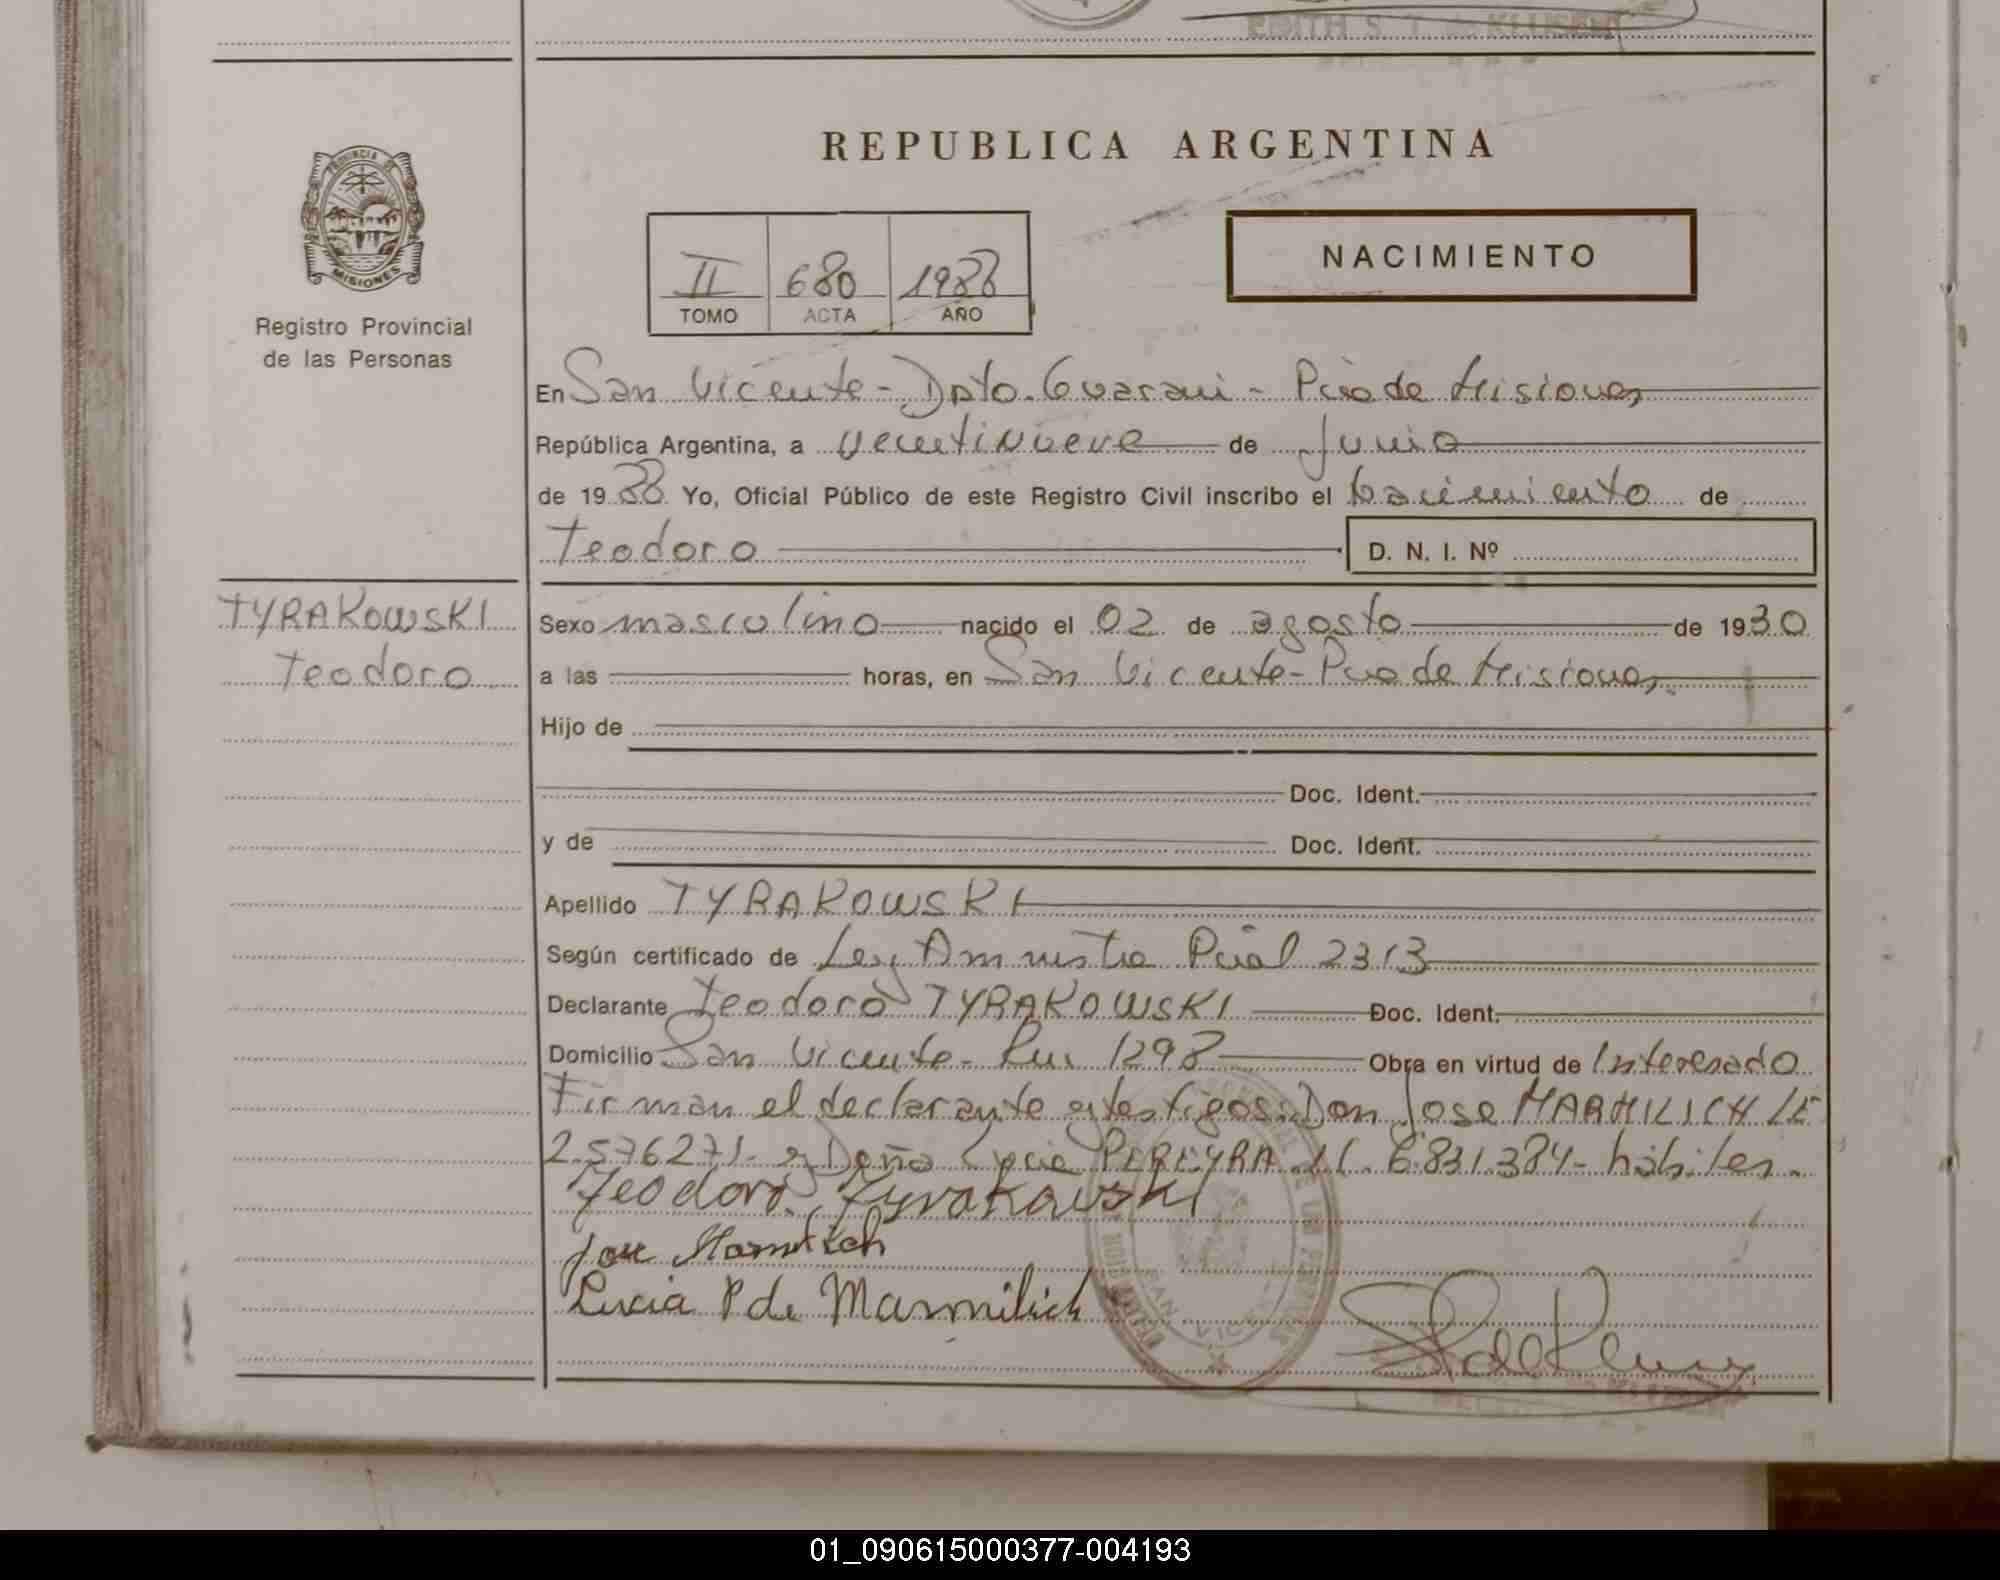 EDITH S. T. de KLUSENER
REPUBLICA ARGENTINA
PROVINCIA DE
MISIONES
Registro Provincial
de las Personas
II 680 1988
TOMO ACTA AÑO
NACIMIENTO
En San Vicente - Dpto. Guarani - Pcia de Misiones
República Argentina, a veintinueve de Junio
de 1988 Yo, Oficial Público de este Registro Civil inscribo el nacimiento de
Teodoro D. N. I. Nº
TYRAKOWSKI
Teodoro
Sexo masculino nacido el 02 de agosto de 1930
a las horas, en San Vicente - Pcia de Misiones
Hijo de
Doc. Ident.
y de Doc. Ident.
Apellido TYRAKOWSKI
Según certificado de Ley Amnistia Pcial 2313
Declarante Teodoro TYRAKOWSKI Doc. Ident.
Domicilio San Vicente - 1298 Obra en virtud de Interesado
Firman el declarante y testigos: Don Jose MARMILICH LE
2.576271- y Doña Lucia PEREYRA LC. 6.831.384- hábiles.
Teodoro Tyrakowski
Jose Marmilich
Lucia P de Marmilich
SAN VICENTE
01_090615000377-004193